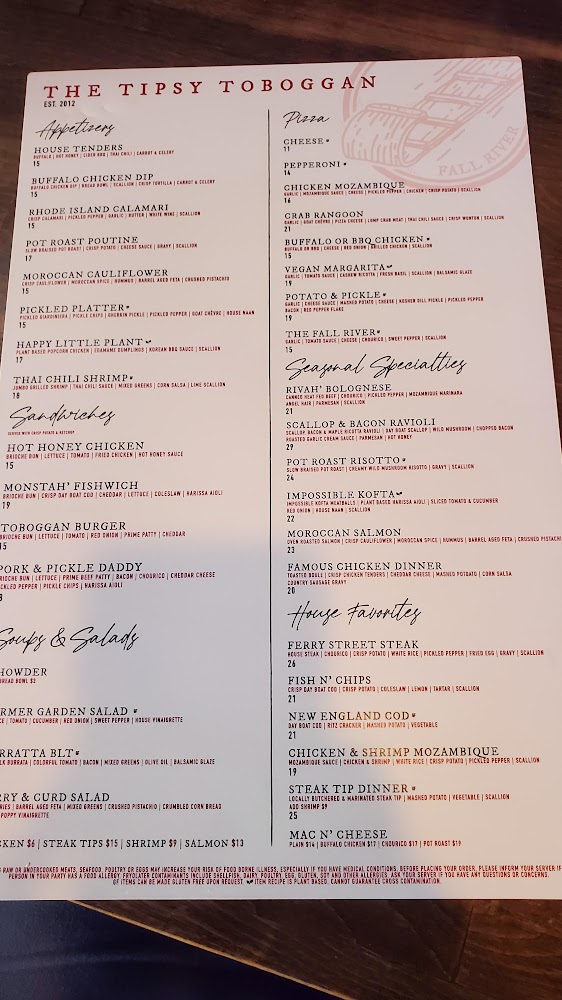 THE TIPSY TOBOGGAN
EST. 2012
FALL RIVER
Appetizers
HOUSE TENDERS
BUFFALO | HOT HONEY | CIDER BBQ | THAI CHILI | CARROT & CELERY
15
BUFFALO CHICKEN DIP
BUFFALO CHICKEN DIP | BREAD BOWL | SCALLION | CRISP TORTILLA | CARROT & CELERY
15
RHODE ISLAND CALAMARI
CRISP CALAMARI | PICKLED PEPPER | GARLIC | BUTTER | WHITE WINE | SCALLION
15
POT ROAST POUTINE
SLOW BRAISED POT ROAST | CRISP POTATO | CHEESE SAUCE | GRAVY | SCALLION
17
MOROCCAN CAULIFLOWER
CRISP CAULIFLOWER | MOROCCAN SPICE | HUMMUS | BARREL AGED FETA | CRUSHED PISTACHIO
15
PICKLED PLATTER
PICKLED GIARDINIERA | PICKLE CHIPS | BOURBON PICKLE | PICKLED PEPPER | GOAT CHÈVRE | HOUSE NAAN
15
HAPPY LITTLE PLANT
PLANT BASED POPCORN CHICKEN | EDAMAME DUMPLINGS | KOREAN BBQ SAUCE | SCALLION
17
THAI CHILI SHRIMP
JUMBO GRILLED SHRIMP | THAI CHILI SAUCE | MIXED GREENS | CORN SALSA | LIME SCALLION
18
Sandwiches
SERVED WITH CRISP POTATO & KETCHUP
HOT HONEY CHICKEN
BRIOCHE BUN | LETTUCE | TOMATO | FRIED CHICKEN | HOT HONEY SAUCE
15
MONSTAH' FISHWICH
BRIOCHE BUN | CRISP DAY BOAT COD | CHEDDAR | LETTUCE | COLESLAW | HARISSA AIOLI
19
TOBOGGAN BURGER
BRIOCHE BUN | LETTUCE | TOMATO | RED ONION | PRIME PATTY | CHEDDAR
15
PORK & PICKLE DADDY
BRIOCHE BUN | LETTUCE | PRIME BEEF PATTY | BACON | CHOURICO | CHEDDAR CHEESE
CKLED PEPPER | PICKLE CHIPS | HARISSA AIOLI
8
Soups & Salads
HOWDER
BREAD BOWL $3
RMER GARDEN SALAD
CE | TOMATO | CUCUMBER | RED ONION | SWEET PEPPER | HOUSE VINAIGRETTE
RRATTA BLT
LK BURRATA | COLORFUL TOMATO | BACON | MIXED GREENS | OLIVE OIL | BALSAMIC GLAZE
RY & CURD SALAD
RIES | BARREL AGED FETA | MIXED GREENS | CRUSHED PISTACHIO | CRUMBLED CORN BREAD
POPPY VINAIGRETTE
CKEN $6 | STEAK TIPS $15 | SHRIMP $9 | SALMON $13
Pizza
CHEESE
11
PEPPERONI
14
CHICKEN MOZAMBIQUE
GARLIC | MOZAMBIQUE SAUCE | CHEESE | PICKLED PEPPER | CHICKEN | CRISP POTATO | SCALLION
16
CRAB RANGOON
GARLIC | GOAT CHÈVRE | PIZZA CHEESE | LUMP CRAB MEAT | THAI CHILI SAUCE | CRISP WONTON | SCALLION
21
BUFFALO OR BBQ CHICKEN
BUFFALO OR BBQ | CHEESE | RED ONION | GRILLED CHICKEN | SCALLION
15
VEGAN MARGARITA
GARLIC | TOMATO SAUCE | CASHEW RICOTTA | FRESH BASIL | SCALLION | BALSAMIC GLAZE
19
POTATO & PICKLE
GARLIC | CHEESE SAUCE | MASHED POTATO | CHEESE | KOSHER DILL PICKLE | PICKLED PEPPER
BACON | RED PEPPER FLAKE
19
THE FALL RIVER
GARLIC | TOMATO SAUCE | CHEESE | CHOURICO | SWEET PEPPER | SCALLION
15
Seasonal Specialties
RIVAH' BOLOGNESE
CANNED HEAT FED BEEF | CHOURICO | PICKLED PEPPER | MOZAMBIQUE MARINARA
ANGEL HAIR | PARMESAN | SCALLION
21
SCALLOP & BACON RAVIOLI
SCALLOP, BACON & MAPLE RICOTTA RAVIOLI | DAY BOAT SCALLOP | WILD MUSHROOM | CHOPPED BACON
ROASTED GARLIC CREAM SAUCE | PARMESAN | HOT HONEY
29
POT ROAST RISOTTO
SLOW BRAISED POT ROAST | CREAMY WILD MUSHROOM RISOTTO | GRAVY | SCALLION
24
IMPOSSIBLE KOFTA
IMPOSSIBLE KOFTA MEATBALLS | PLANT BASED HARISSA AIOLI | SLICED TOMATO & CUCUMBER
RED ONION | HOUSE NAAN | SCALLION
22
MOROCCAN SALMON
OVEN ROASTED SALMON | CRISP CAULIFLOWER | MOROCCAN SPICE | HUMMUS | BARREL AGED FETA | CRUSHED PISTACHI
23
FAMOUS CHICKEN DINNER
TOASTED BOULE | CRISP CHICKEN TENDERS | CHEDDAR CHEESE | MASHED POTATO | CORN SALSA
COUNTRY SAUSAGE GRAVY
20
House Favorites
FERRY STREET STEAK
HOUSE STEAK | CHOURICO | CRISP POTATO | WHITE RICE | PICKLED PEPPER | FRIED EGG | GRAVY | SCALLION
26
FISH N' CHIPS
CRISP DAY BOAT COD | CRISP POTATO | COLESLAW | LEMON | TARTAR | SCALLION
21
NEW ENGLAND COD
DAY BOAT COD | RITZ CRACKER | MASHED POTATO | VEGETABLE
21
CHICKEN & SHRIMP MOZAMBIQUE
MOZAMBIQUE SAUCE | CHICKEN & SHRIMP | WHITE RICE | CRISP POTATO | PICKLED PEPPER | SCALLION
19
STEAK TIP DINNER
LOCALLY BUTCHERED & MARINATED STEAK TIP | MASHED POTATO | VEGETABLE | SCALLION
ADD SHRIMP $9
25
MAC N' CHEESE
PLAIN $14 | BUFFALO CHICKEN $17 | CHOURICO $17 | POT ROAST $19
RAW OR UNDERCOOKED MEATS, SEAFOOD, POULTRY OR EGGS MAY INCREASE YOUR RISK OF FOOD BORNE ILLNESS, ESPECIALLY IF YOU HAVE MEDICAL CONDITIONS. BEFORE PLACING YOUR ORDER, PLEASE INFORM YOUR SERVER IF
PERSON IN YOUR PARTY HAS A FOOD ALLERGY. FRYOLATER CONTAMINANTS INCLUDE SHELLFISH, DAIRY, POULTRY, EGG, GLUTEN, SOY AND OTHER ALLERGIES. ASK YOUR SERVER IF YOU HAVE ANY QUESTIONS OR CONCERNS.
OF ITEMS CAN BE MADE GLUTEN FREE UPON REQUEST. ITEM RECIPE IS PLANT BASED. CANNOT GUARANTEE CROSS CONTAMINATION.